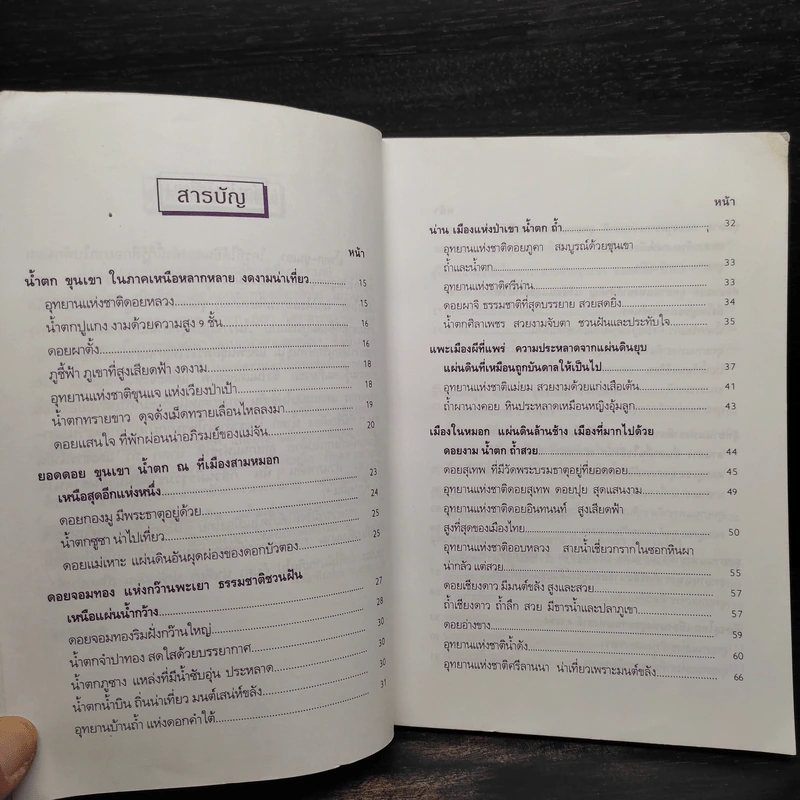 สารบัญ
หน้า
น้ำตก ขุนเขา ในภาคเหนือหลากหลาย งดงามน่าเที่ยว 15
อุทยานแห่งชาติดอยหลวง 15
น้ำตกปูแกง งามด้วยความสูง 9 ชั้น 16
ดอยผาตั้ง 16
ภูชี้ฟ้า ภูเขาที่สูงเสียดฟ้า งดงาม 18
อุทยานแห่งชาติขุนแจ แห่งเวียงป่าเป้า 18
น้ำตกทรายขาว ดุจดั่งเม็ดทรายเลื่อนไหลลงมา 19
ดอยแสนใจ ที่พักผ่อนน่าอภิรมย์ของแม่จัน 20
ยอดดอย ขุนเขา น้ำตก ณ ที่เมืองสามหมอก
เหนือสุดอีกแห่งหนึ่ง 23
ดอยกองมู มีพระธาตุอยู่ด้วย 24
น้ำตกซูซา น่าไปเที่ยว 25
ดอยแม่เหาะ แผ่นดินอันผุดผ่องของดอกบัวตอง 25
ดอยจอมทอง แห่งกว๊านพะเยา ธรรมชาติชวนฝัน
เหนือแผ่นน้ำกว้าง 27
ดอยจอมทองริมฝั่งกว๊านใหญ่ 28
น้ำตกจำปาทอง สดใสด้วยบรรยากาศ 30
น้ำตกภูซาง แหล่งที่มีน้ำซับอุ่น ประหลาด 30
น้ำตกน้ำปิน ถิ่นน่าเที่ยว มนต์เสน่ห์ขลัง 30
อุทยานบ้านถ้ำ แห่งดอกคำใต้ 31
หน้า
น่าน เมืองแห่งป่าเขา น้ำตก ถ้ำ 32
อุทยานแห่งชาติดอยภูคา สมบูรณ์ด้วยขุนเขา
ถ้ำและน้ำตก 33
อุทยานแห่งชาติศรีน่าน 33
ดอยผาจิ ธรรมชาติที่สุดบรรยาย สวยสดยิ่ง 34
น้ำตกศิลาเพชร สวยงามจับตา ชวนฝันและประทับใจ 35
แพะเมืองผีที่แพร่ ความประหลาดจากแผ่นดินยุบ
แผ่นดินที่เหมือนถูกบันดาลให้เป็นไป 37
อุทยานแห่งชาติแม่ยม สวยงามด้วยแก่งเสือเต้น 41
ถ้ำผานางคอย หินประหลาดเหมือนหญิงอุ้มลูก 43
เมืองในหมอก แผ่นดินล้านช้าง เมืองที่มากไปด้วย
ดอยงาม น้ำตก ถ้ำสวย 44
ดอยสุเทพ ที่มีวัดพระบรมธาตุอยู่ที่ยอดดอย 45
อุทยานแห่งชาติดอยสุเทพ ดอยปุย สุดแสนงาม 49
อุทยานแห่งชาติดอยอินทนนท์ สูงเสียดฟ้า
สูงที่สุดของเมืองไทย 50
อุทยานแห่งชาติออบหลวง สายน้ำเชี่ยวกรากในซอกหินผา
น่ากลัว แต่สวย 55
ดอยเชียงดาว มีมนต์ขลัง สูงและสวย 57
ถ้ำเชียงดาว ถ้ำลึก สวย มีธารน้ำและปลาภูเขา 57
ดอยอ่างขาง 59
อุทยานแห่งชาติน้ำดัง 60
อุทยานแห่งชาติศรีลานนา น่าเที่ยวเพราะมนต์ขลัง 66